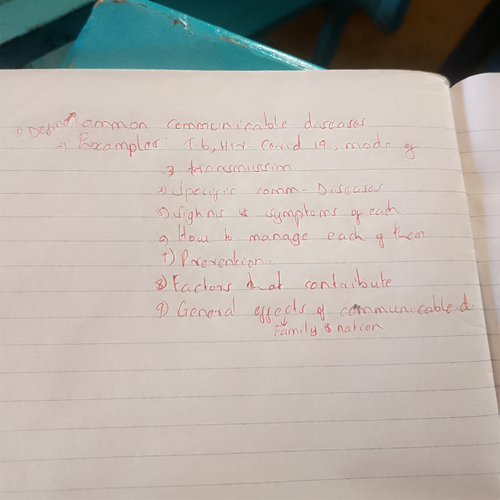 1) Define Common communicable diseases
-) Examples: T.b, HIV Covid 19, mode of
3 transmission
4) Specific comm. Diseases
5) Sighns & symptoms of each.
6) How to manage each of them
7) Prevention.
8) Factors that contribute
9) General effects of communicable d.
Family & nation